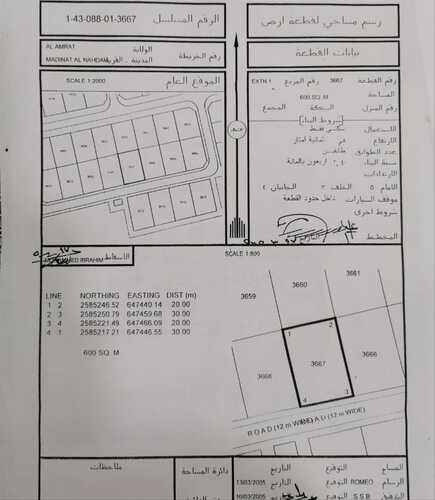 رسم مساحي لقطعة ارض
الرقم المسلسل
1-43-088-01-3667
بيانات القطعة
رقم القطعة 3667 رقم المربع EXTN.1
المساحة
600 SQ. M
رقم المنزل السكة المجمع
شروط البناء
الاستعمال سكني فقط
الارتفاع ثمانية امتار
عدد الطوابق طابقين
نسبة البناء ٤٠ اربعون بالمائة
الارتدادات
الامام ٥ الخلف ٣ الجانبان ٤
موقف السيارات داخل حدود القطعة
شروط اخرى
المخطط التاريخ
الولاية
AL AMRAT
المدينة القرية
MADINAT AL NAHDAH
رقم الخريطة
الموقع العام
SCALE 1:2000
الاسقاط
IBRAHIM
SCALE 1:500
LINE NORTHING EASTING DIST (m)
1 2 2585246.52 647440.14 20.00
2 3 2585250.79 647459.68 30.00
3 4 2585221.49 647466.09 20.00
4 1 2585217.21 647446.55 30.00
600 SQ. M
3661
3660
3659
1
2
3667
3666
3668
3
4
ROAD (12 m WIDE)
(12 m WIDE)
ملاحظات
دائرة المساحة
المساح التوقيع التاريخ
الرسام ROMEO التوقيع التاريخ 13/03/2005
S.S.B التوقيع التاريخ 16/03/2005